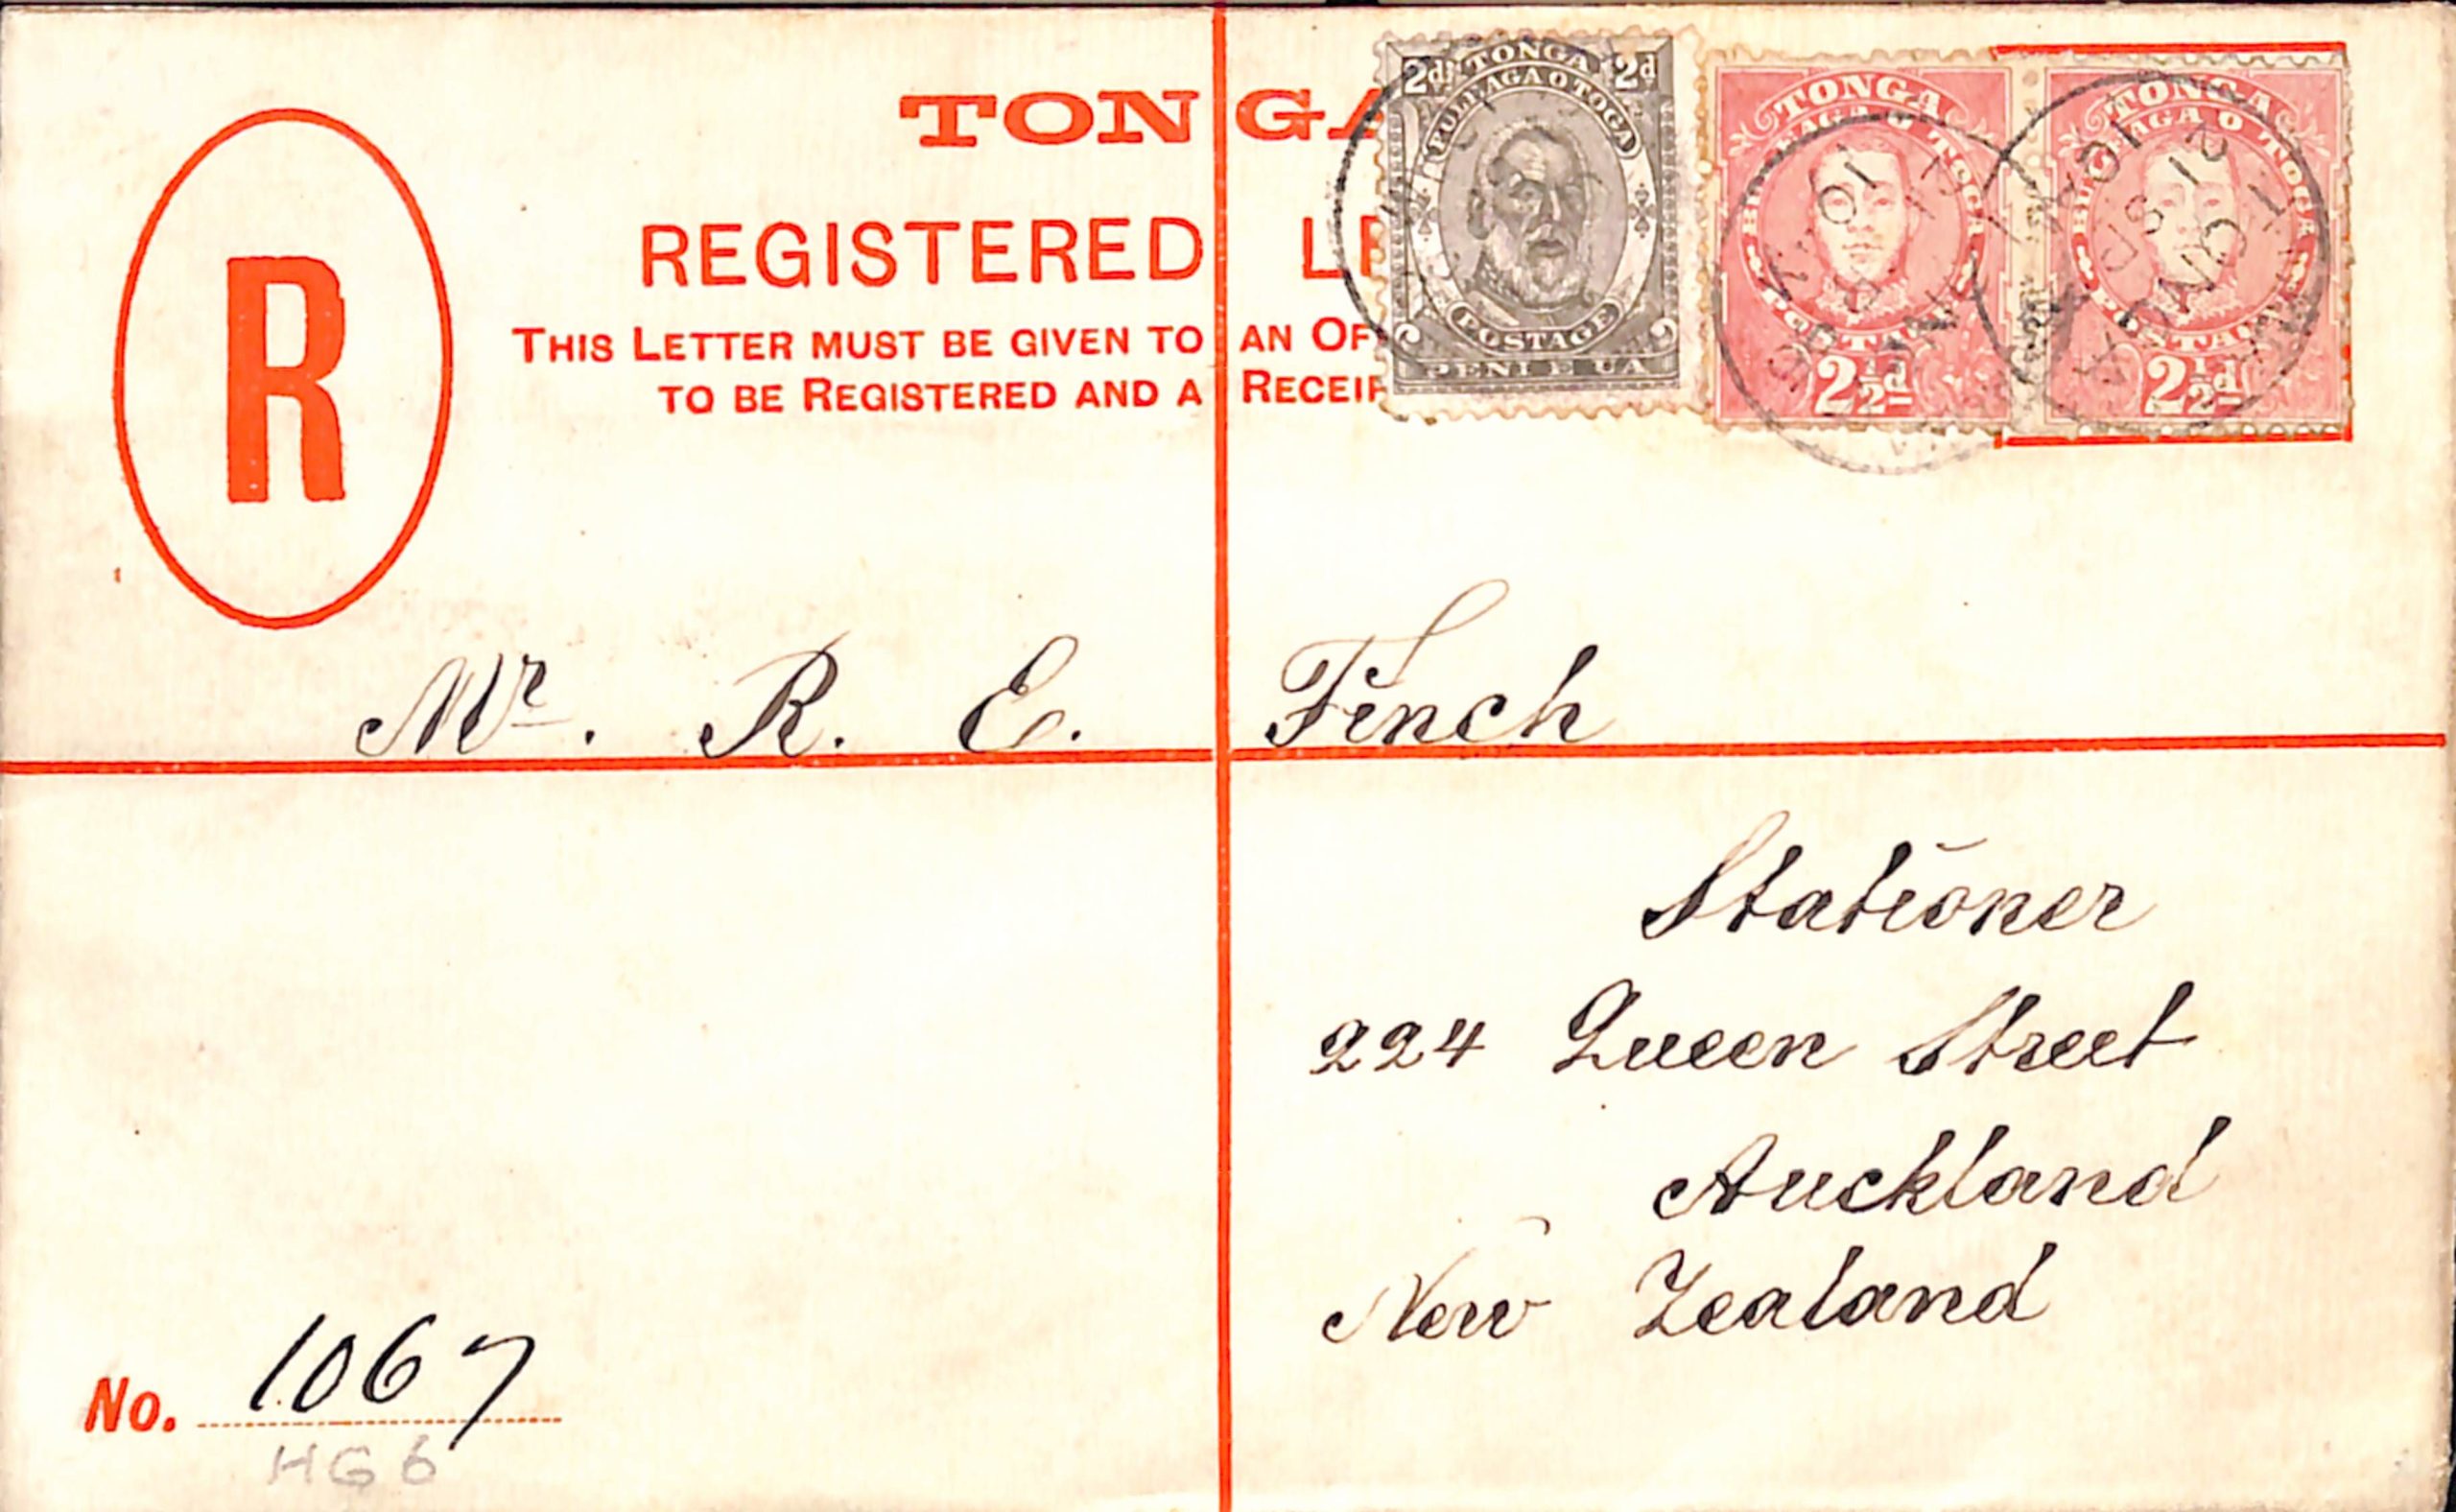 TONGA
REGISTERED LE
THIS LETTER MUST BE GIVEN TO AN OF
TO BE REGISTERED AND A RECEIP
R
2d TONGA 2d
BULEAGA O TOGA
POSTAGE
PENI E UA
TONGA
BULEAGA O TOGA
POSTAGE
2½d
TONGA
BULEAGA O TOGA
POSTAGE
2½d
Mr. R. E. Finch
Stationer
224 Queen Street
Auckland
New Zealand
No. 1067
HG 6